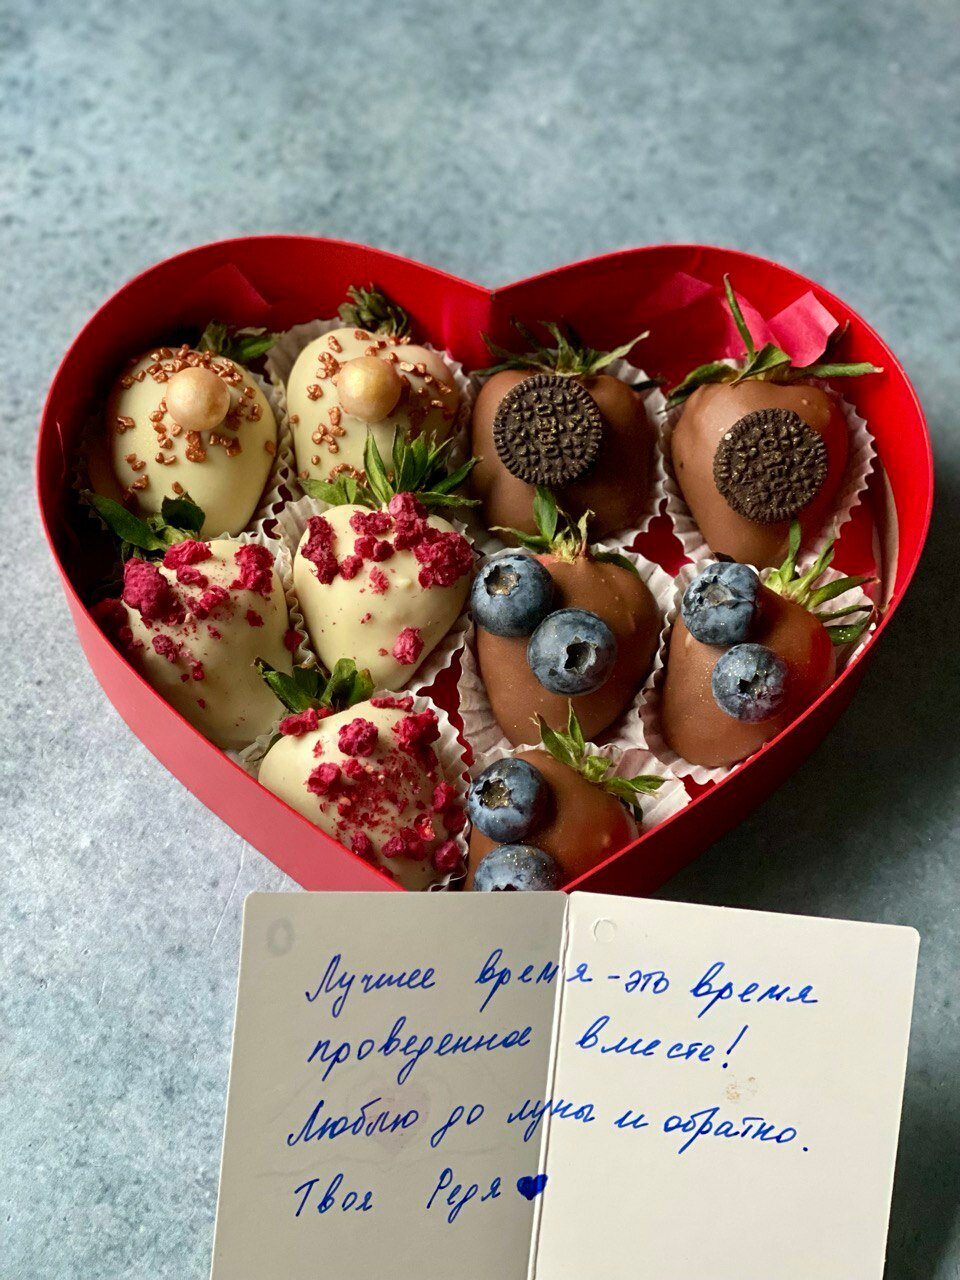 OREO
OREO
Лучшее время - это время
проведенное вместе!
Люблю до луны и обратно.
Твоя Редя